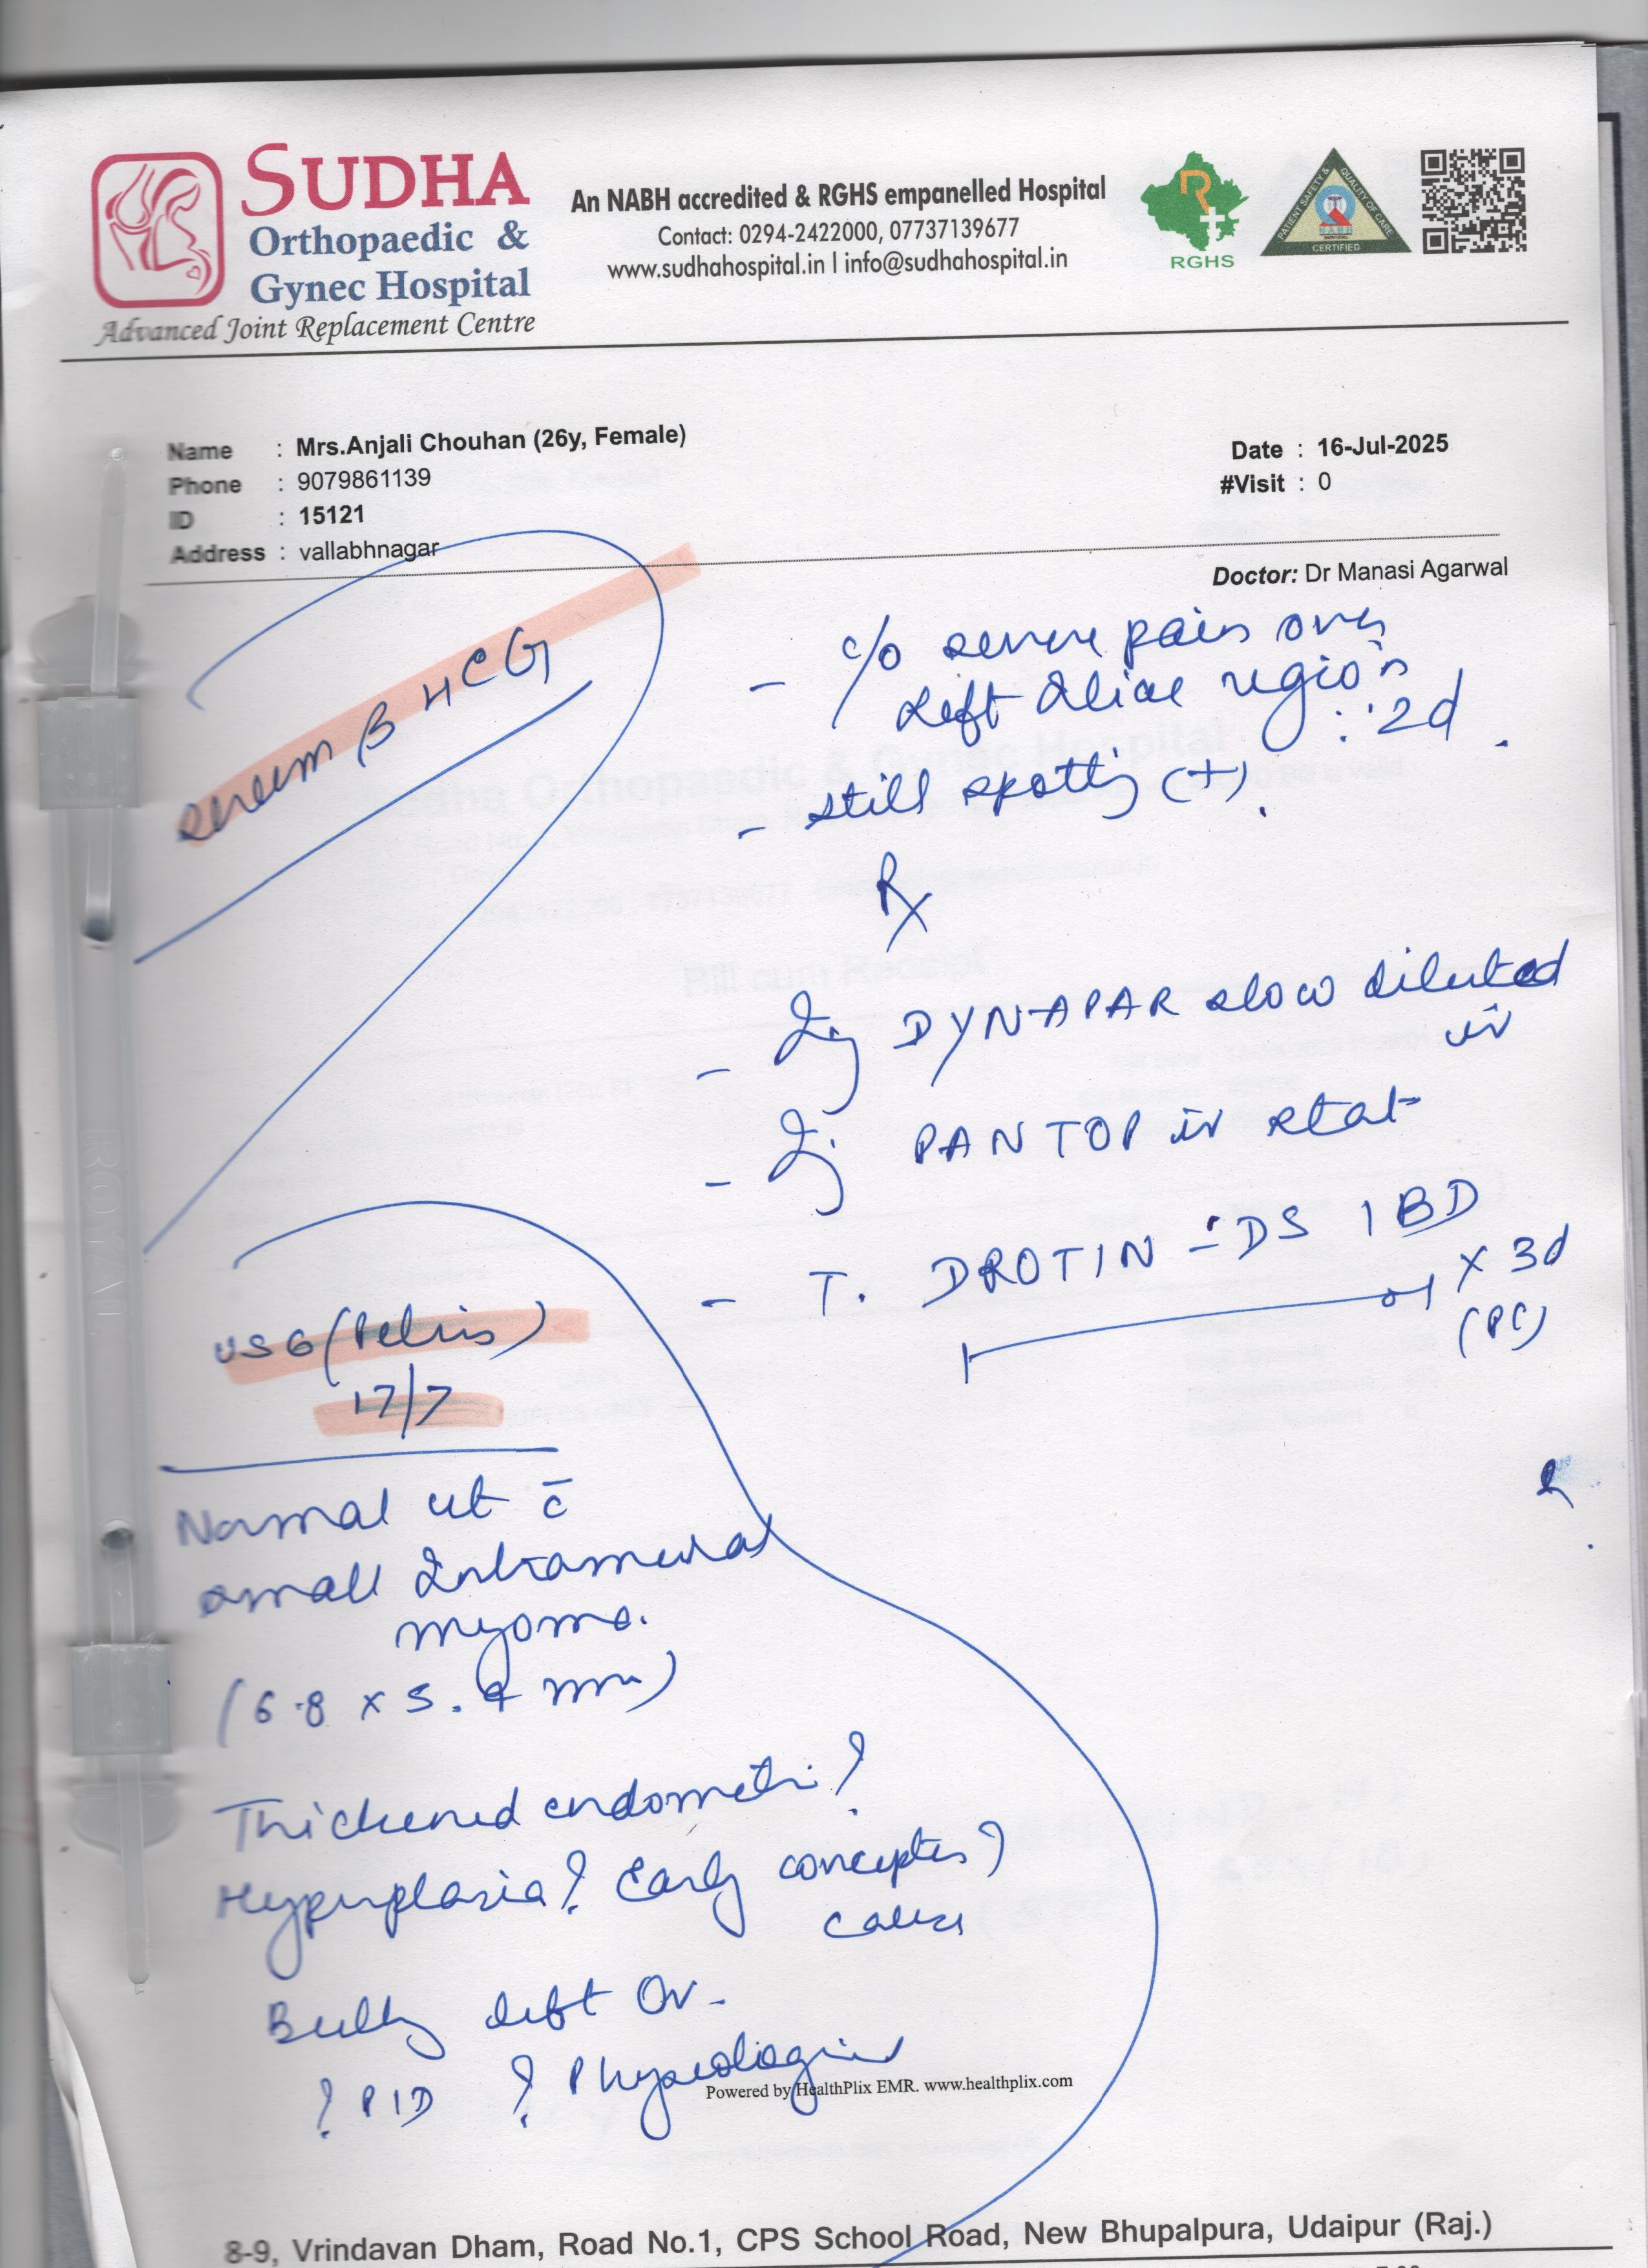 SUDHA
Orthopaedic &
Gynec Hospital
Advanced Joint Replacement Centre
An NABH accredited & RGHS empanelled Hospital
Contact: 0294-2422000, 07737139677
www.sudhahospital.in | info@sudhahospital.in
RGHS
PATIENT SAFETY & QUALITY OF CARE
NABH
CERTIFIED
Name : Mrs.Anjali Chouhan (26y, Female)
Phone : 9079861139
ID : 15121
Address : vallabhnagar
Date : 16-Jul-2025
#Visit : 0
Doctor: Dr Manasi Agarwal
serum β HCG
- c/o severe pain over
left iliac region
: 2d.
- still spotting (+).
Rx
- Inj DYNAPAR slow diluted
iv
- Inj PANTOP iv stat
- T. DROTIN - DS 1 BD
x 3d
(PC)
USG (Pelvis)
17/7
Normal ut c̄
small Intramural
myoma.
(6.8 x 5.9 mm)
Thickened endometri?
Hyperplasia? Early conceptus?
cause
Bulky left Ov-
? PID ? Physiological
Powered by HealthPlix EMR. www.healthplix.com
8-9, Vrindavan Dham, Road No.1, CPS School Road, New Bhupalpura, Udaipur (Raj.)
ROYAL